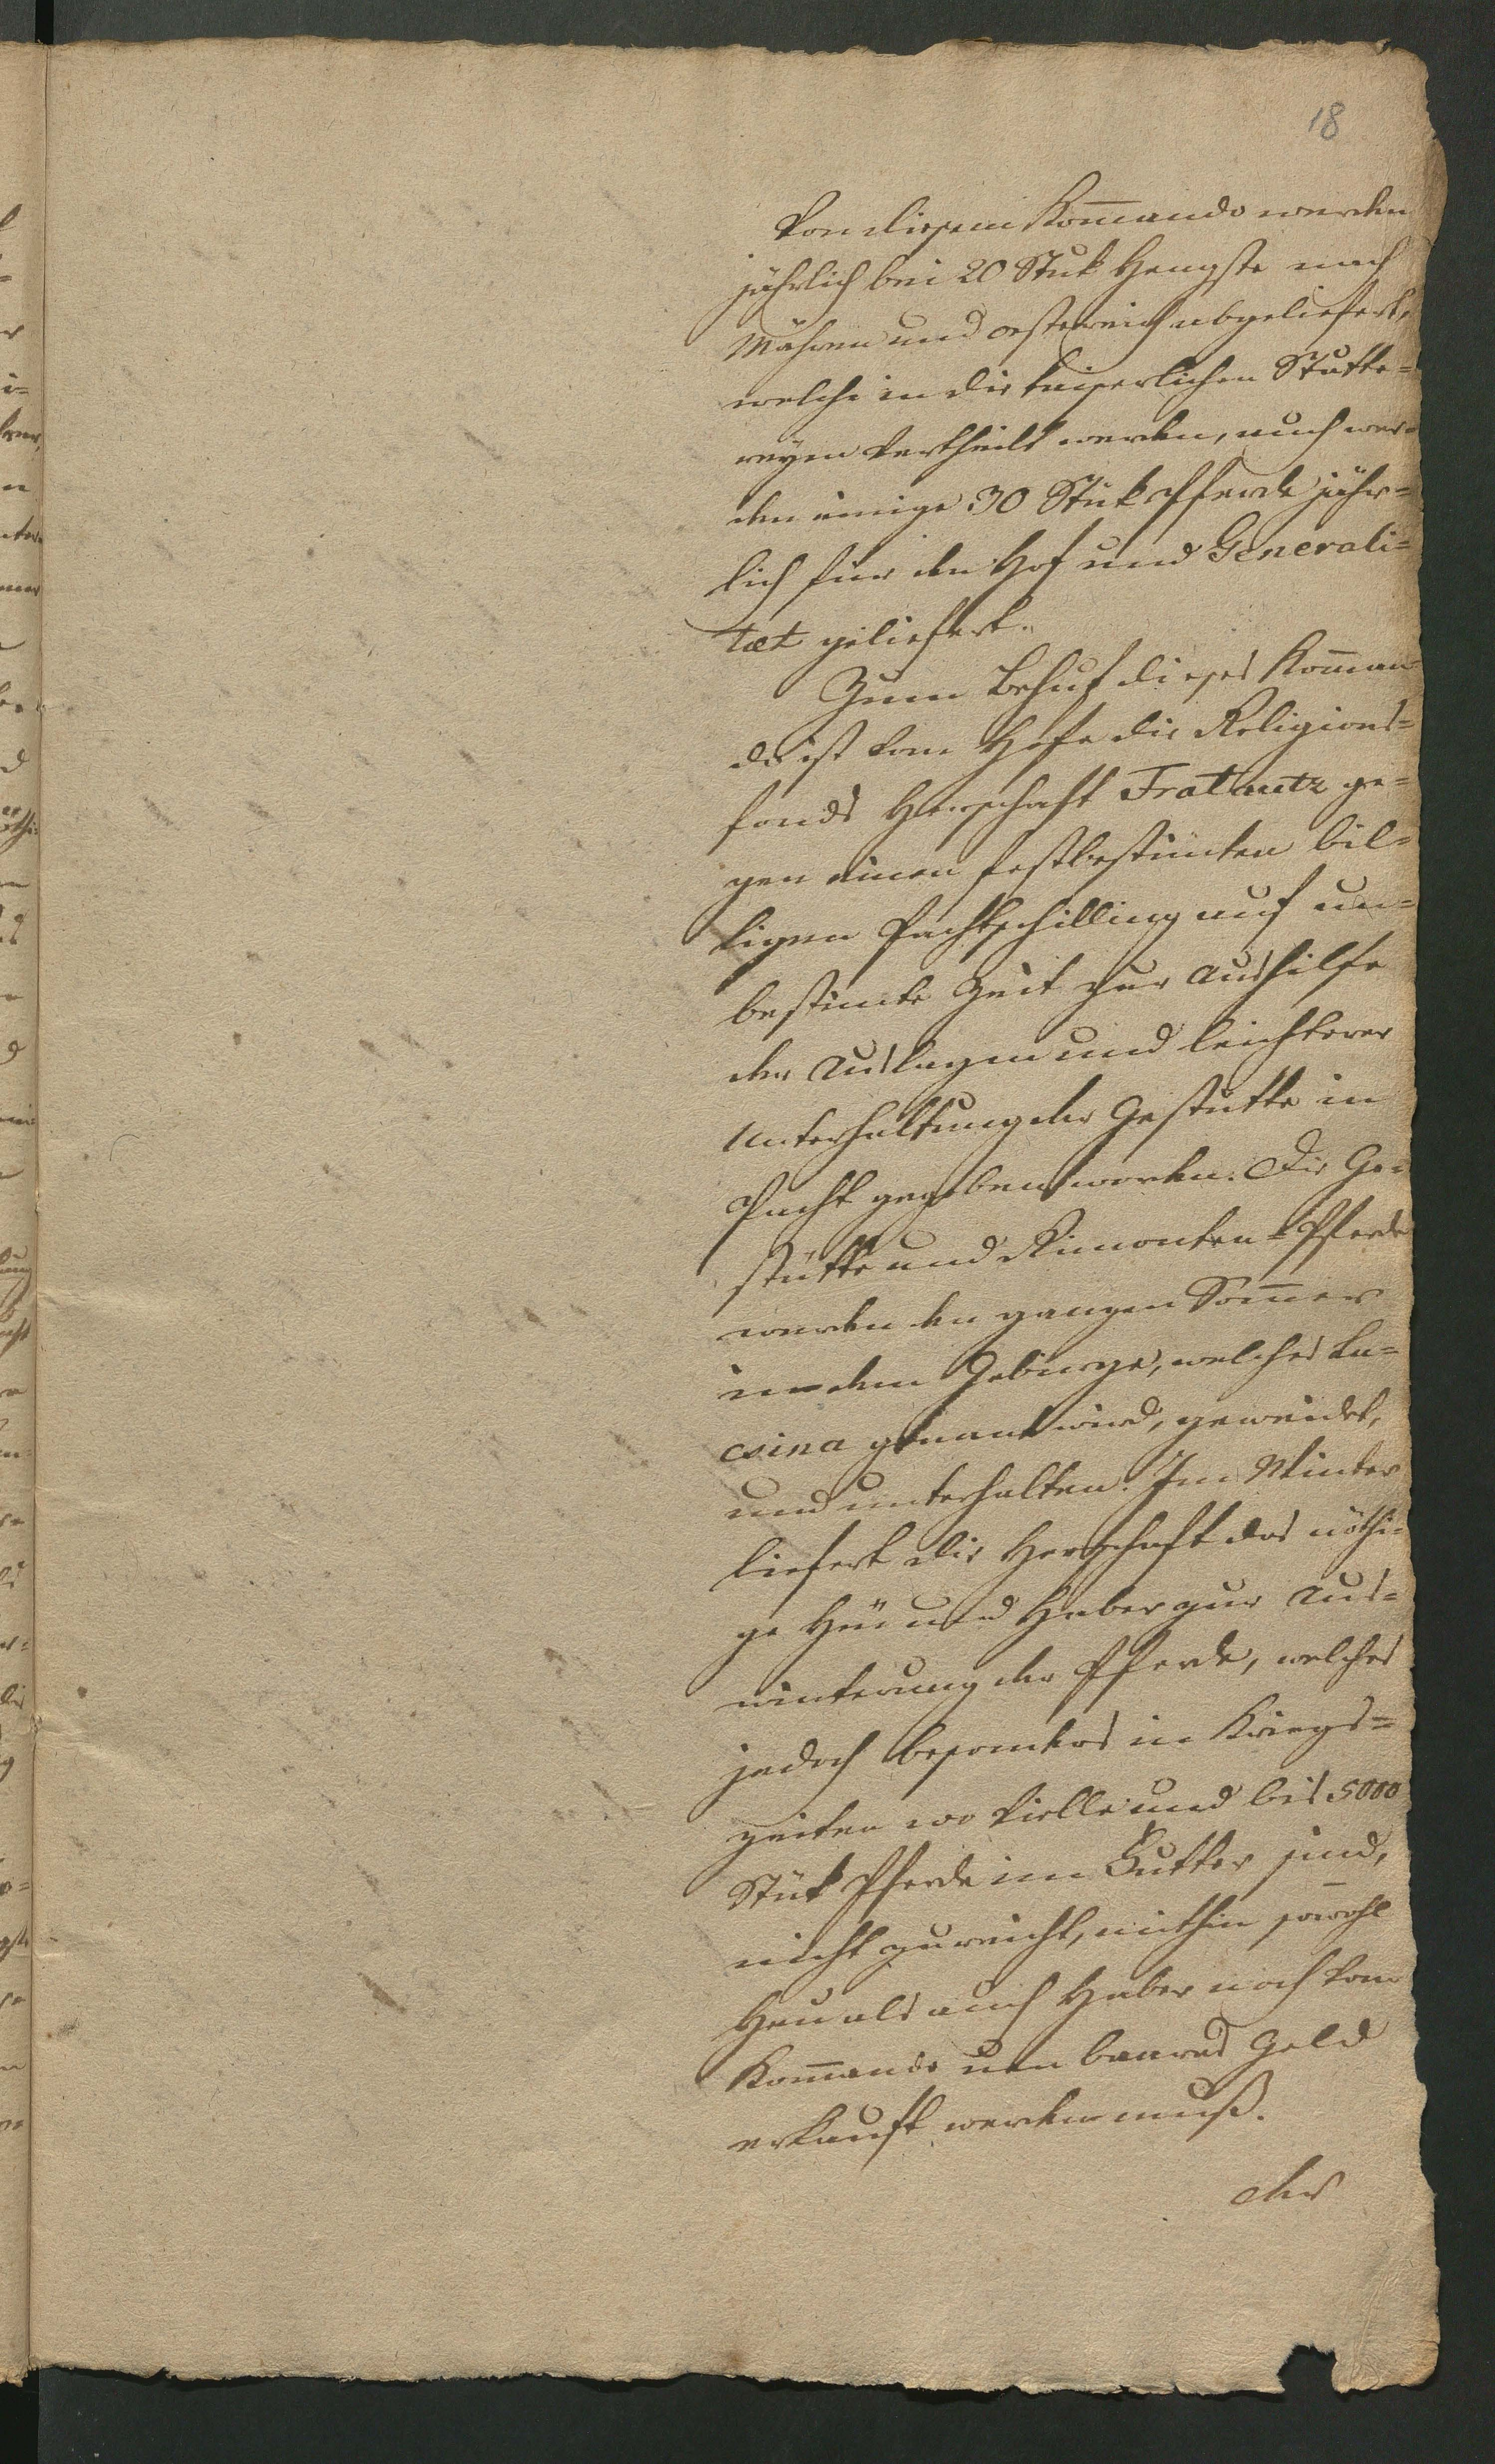 18
Von diesem Kom̄ando werden
jährlich bei 20 Stuk Hengste nach
Mähren und oesterreich abgeliefert,
welche in die kaiserlichen Stutte=
reyen vertheilt werden, auch wer=
den einige 30 Stük Pferde jähr=
lich für den Hof und Generali=
tæt geliefert.
Zum Behuf dieses Kom̄an=
do ist vom Hofe die Religions=
fonds Herrschaft Fratautz ge=
gen einen festbestimten bil=
ligen Pachtschilling auf un=
bestimte Zeit zur Aushilfe
der Auslagen und leichterer
Unterhaltung der Gestütte in
Pacht gegeben worden. Die Ge=
stütte und Rimonten=Pferde
werden den ganzen Som̄er
in dem Gebirge, welches Lu=
csina genant wird, geweidet,
und unterhalten. Im Winter
liefert die Herrschaft das nöthi=
ge Heu und Haber zur Aus=
winterung der Pferde, welches
jedoch besonders in Kriegs=
zeiten wo vielle und bis 5000
Stük Pferde im Futter sind,
nicht zureicht, mithin sowohl
Heu als auch Haber noch vom
Kom̄ando um baares Geld
erkauft werden muß.
der